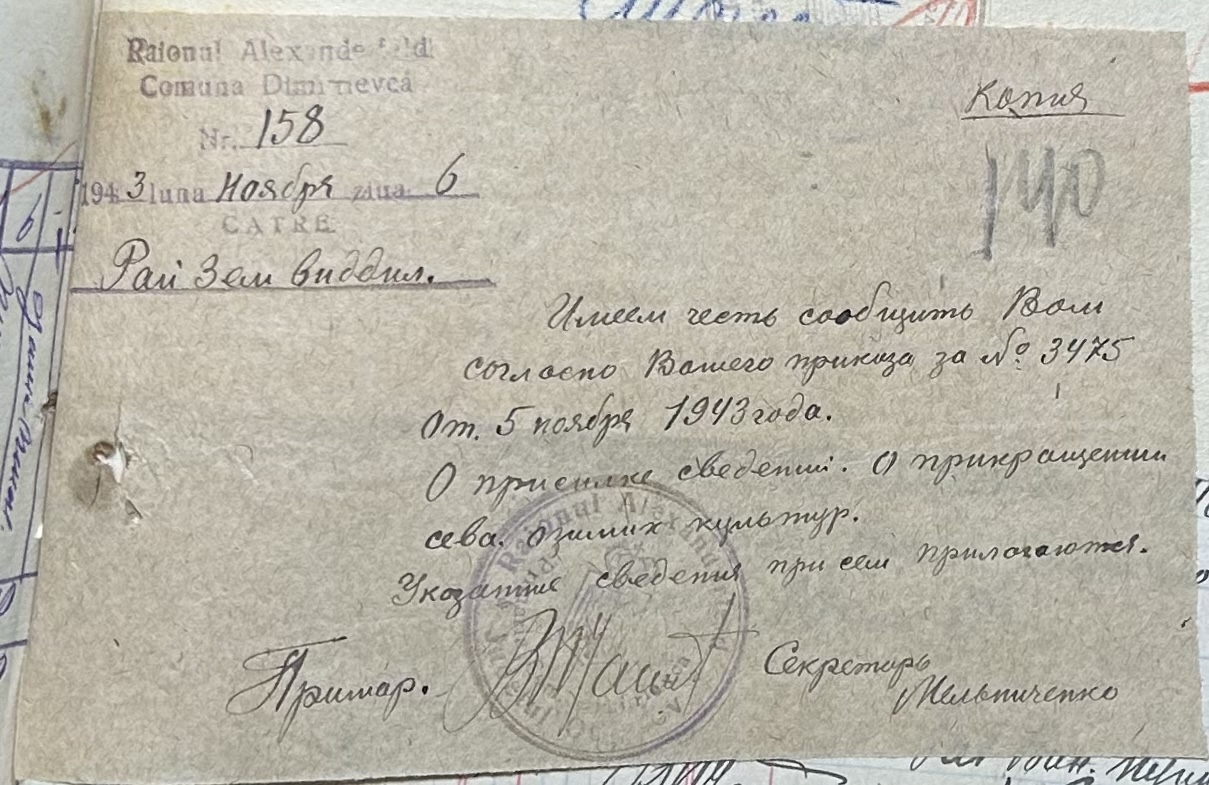 Raional Alexanderfeld
Comuna Dimitrievca
Nr. 158
1943 luna Ноября ziua 6
CATRE
Рай Зем виддил.
Копия
140
Имеем честь сообщить Вам
согласно Вашего приказа за № 3475
От. 5 ноября 1943 года.
О присилке сведений. О прикращении
сева. озимих культур.
Указание сведения при сем прилогаются.
Примар.
Секретарь
Мельниченко
Raionul Alexand